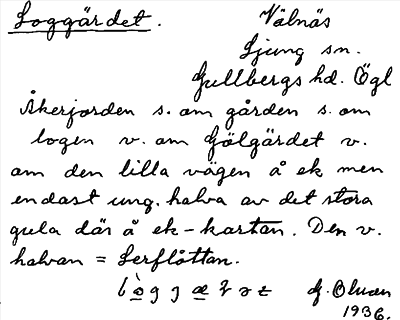 Loggärdet. Välnäs
Ljung sn.
Gullbergs hd. Ögl
Åkerjorden s. om gården s. om
logen v. om Gölgärdet v.
om den lilla vägen å ek men
endast ung. halva av det stora
gula där å ek-kartan. Den v.
halvan = Lerflåttan.
G. Olusen
1936.